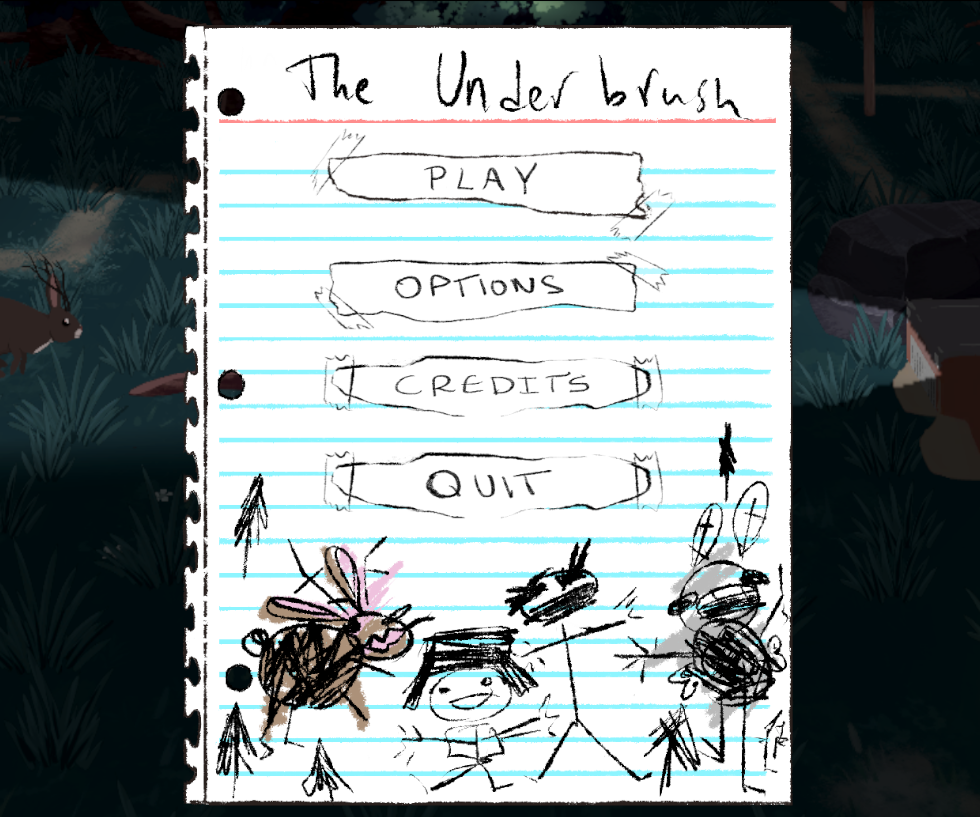 The Underbrush
PLAY
OPTIONS
CREDITS
QUIT